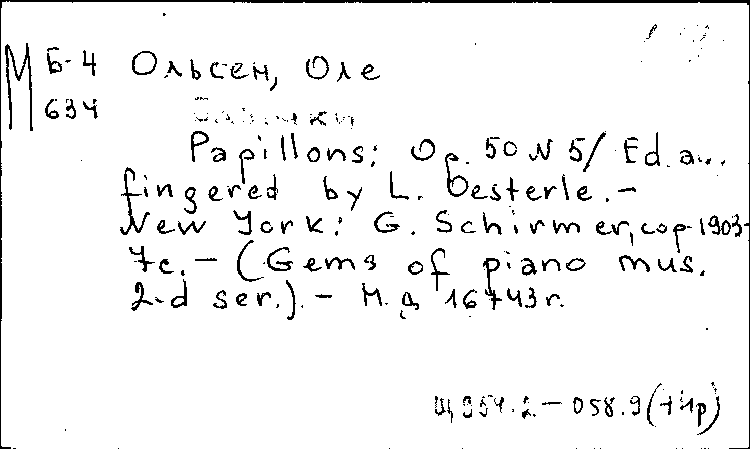 М Б-4 Ольсен, Оле
634
Papillons; Op. 50 N 5/ Ed. a...
fingered by L. Oesterle.-
New York: G. Schirmer, cop 1903-
7с.- (Gems of piano mus.
2-d ser.).- Н.д. 16743г.
Щ954.2-058.9(4Нр)